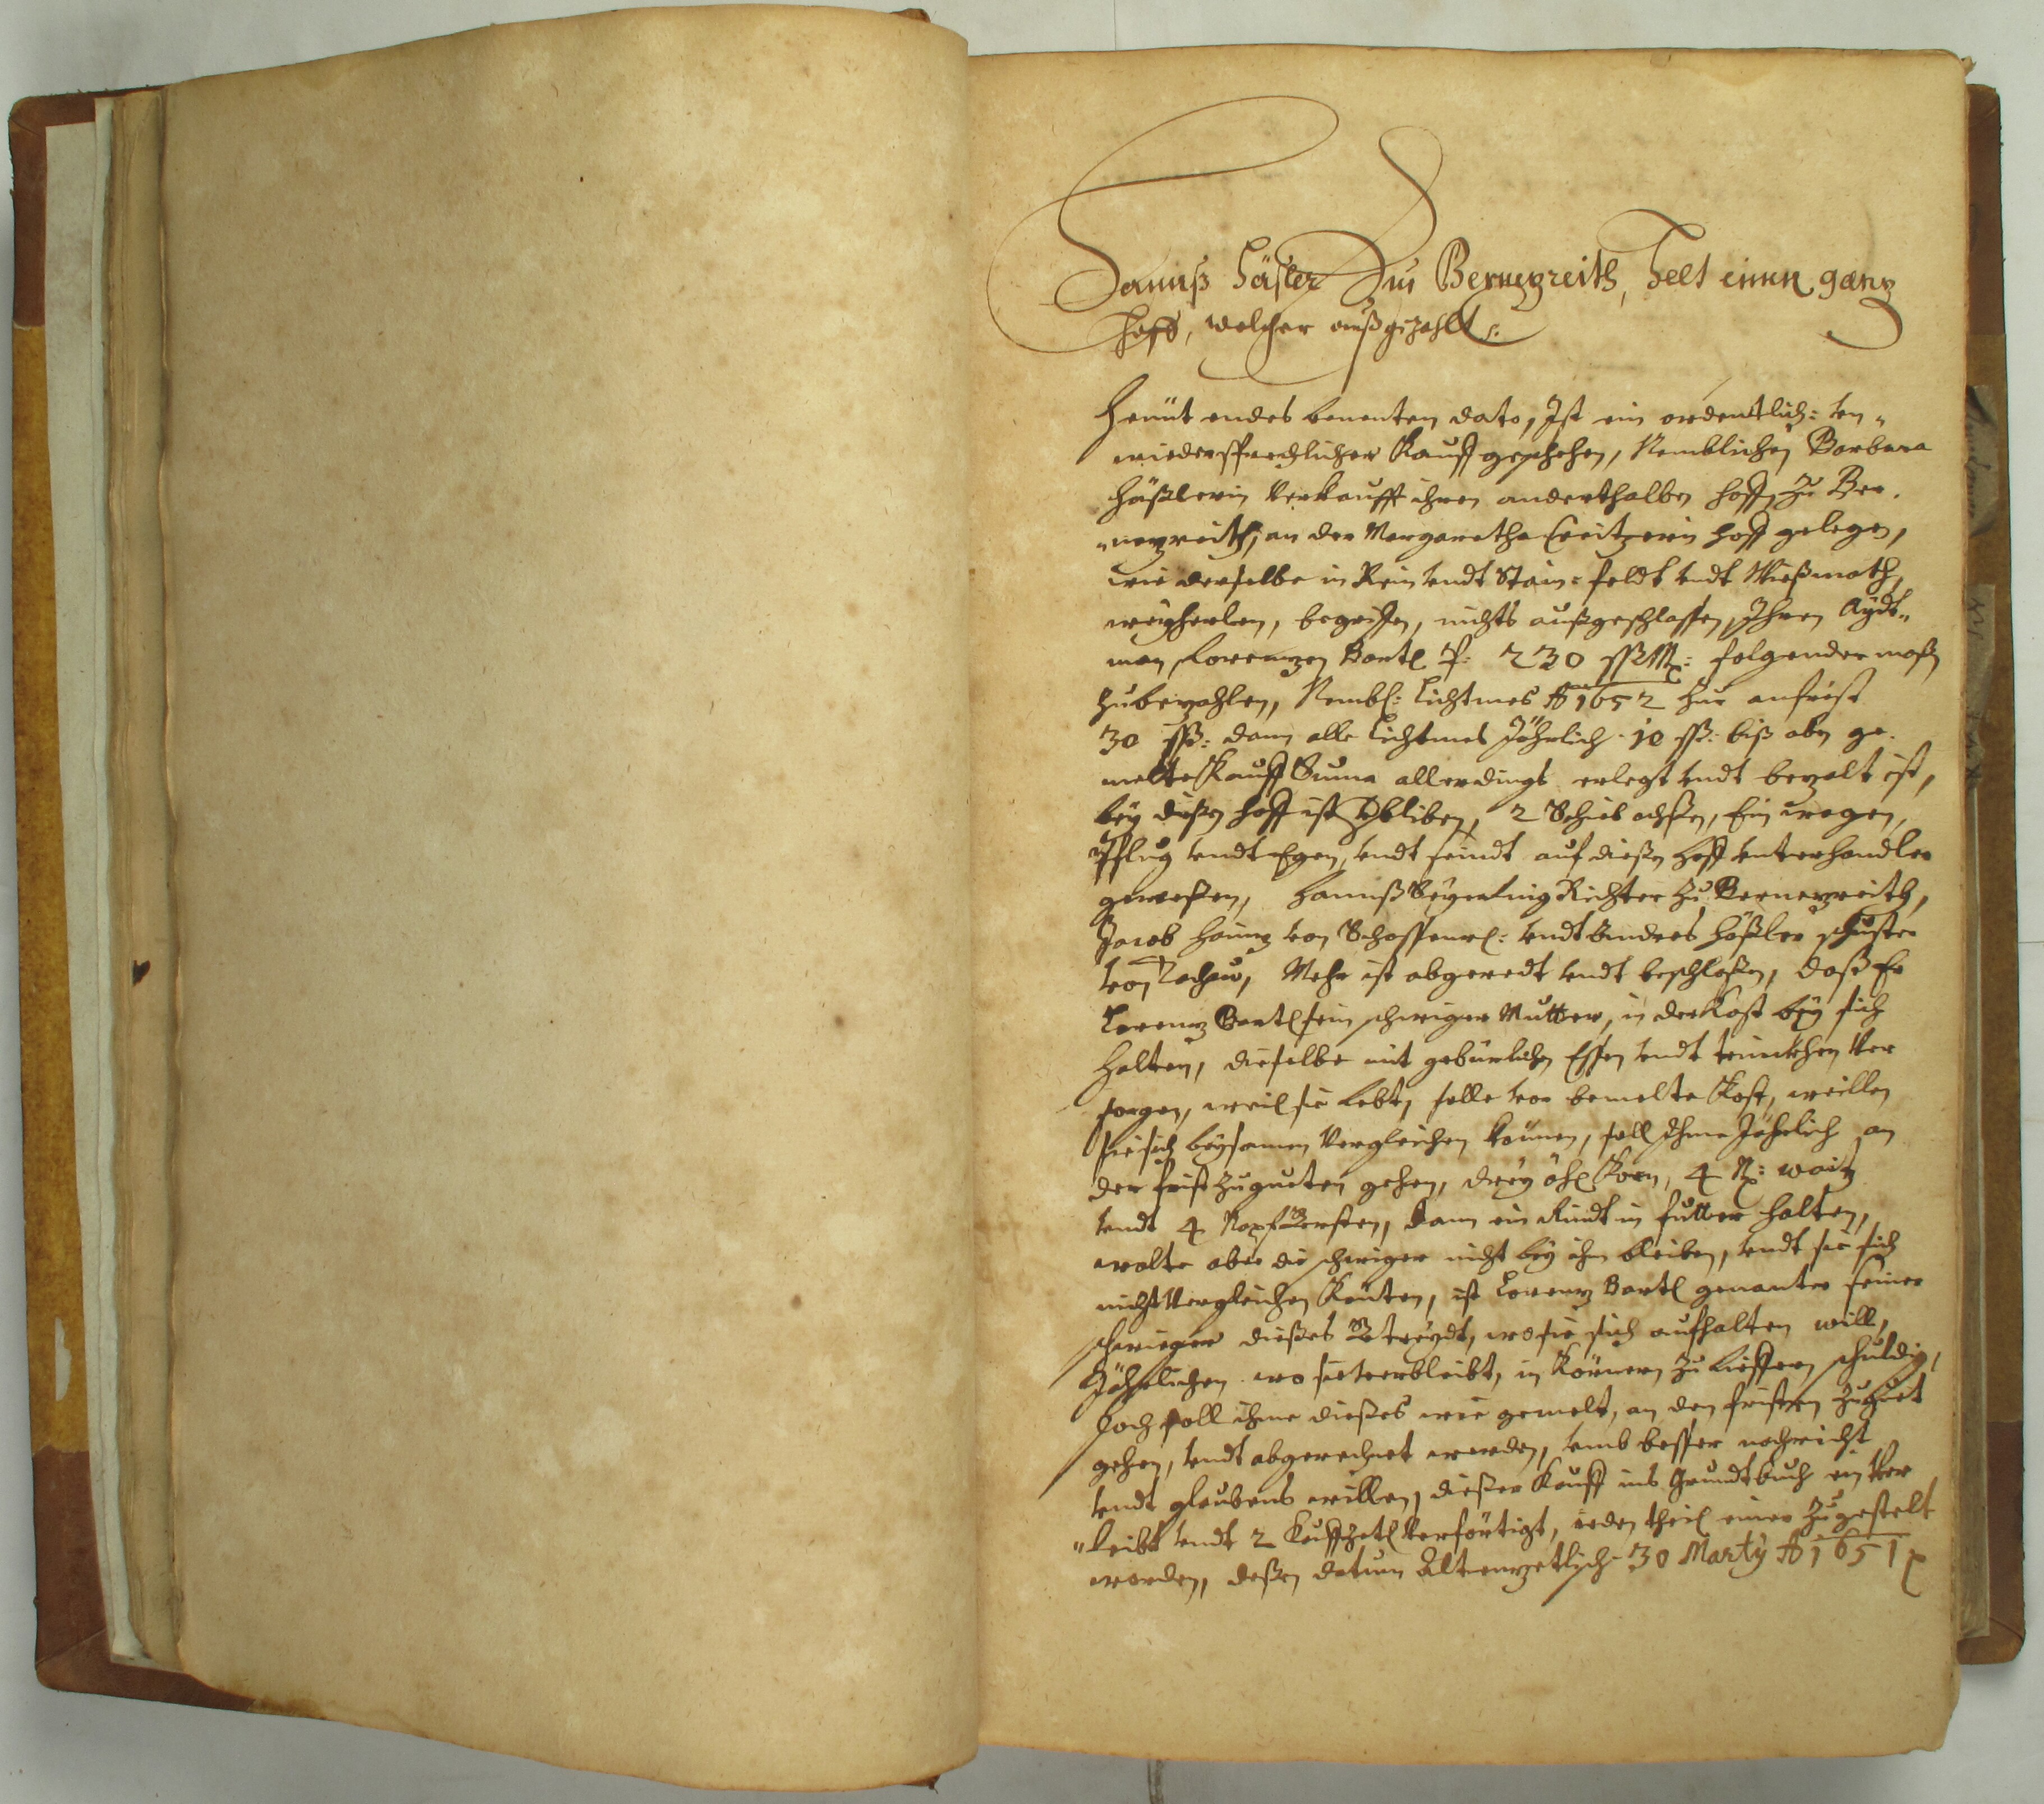 Hannß Häsler Zu Bernezreith, helt einen ganz
Hoff, welcher außgezahlt
Heuut endes benenten dato, Ist ein ordentlich: vn„
wiedersprechlicher Kauff geschehen, Nemblichen Barbara
Häßlerin Verkaufft ihren anderthalben Hoff zu Ber.
„nezreith, an der Margaretha hoff gelegen,
wie derselbe in Rein vndt Stain: feldt vndt Wießmath,
weyherlen, begriffen, nichts außgeschlossen, Ihren Aydt„
man Lorenzen Bartl P: 230 folgender maßen
zubezahlen, Nembl: Lichtmes Ao 1652 zur anfrist
30 ßß: dann alle Lichtmes Jährlich 10 ßß: biß oben ge.
melte Kauff Suma allerdings erlegt vndt bezalt ist,
bey dießen hoff ist bliben, 2 ochßen, Ein wagen,
Pflug vndt Egen, vndt seindt auf dießen hoff vnterhandler
geweßen, Hannß Richter zu Bernezreith,
Jacob von vndt Andres Häßler schuster
von Tachau, Mehr ist abgeredt vndt beschloßen, daß Er
Lorenz Bartl sein schwiger Mutter, in der Kost bey sich
halten, dieselbe mit gebürlichen Essen vndt trinckhen Ver
sorgen, weil sie lebt, solle vor bemelte Kost, weillen
sie sich beysamen Vergleichen können, soll Ihme Jährlich an
der frist zugueten gehen, drey Korn, 4 N: waitz
vndt 4 Napf Gersten, dann ein Rindt in futter halten,
wolte aber die schwiger nicht bey ihm bleiben, vndt sie sich
nicht Vergleichen Könten, ist Lorenz Bartl genanter seiner
schwieger dießes Getreydt, wo sie sich aufhalten will,
Jährlichen wo sie verbleibt, in Körnern zu lieffern schuldig,
Doch soll ihme dießes wie gemelt, an den fristen zuguet
gehen, vndt abgerechnet werden, vmb besser nachricht
vndt glaubens willen, dießer Kauff ins Grundtbuch ein Ver
„leibt vndt 2 Kauffzetl Verförtigt, ieden theil einer zugestelt
worden, deßen datum Altenzetlisch 30 Marty Ao 1651